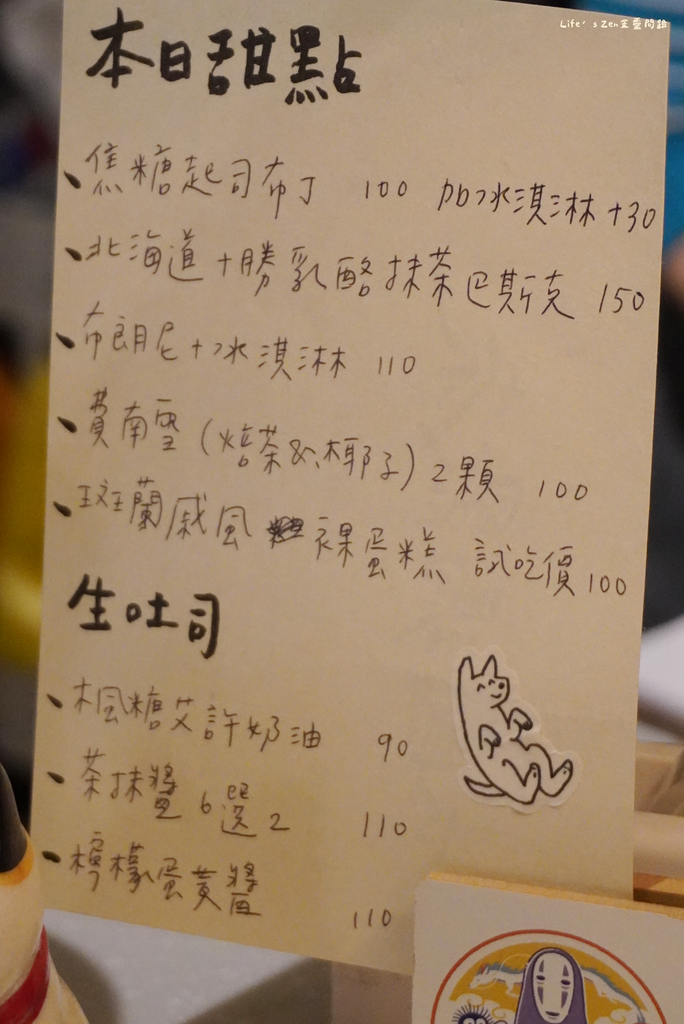 Life's Zen王靈閱誌
本日甜點
、焦糖起司布丁 100 加冰淇淋+30
、北海道十勝乳酪抹茶巴斯克 150
、布朗尼+冰淇淋 110
、費南雪(焙茶&椰子)2顆 100
、斑蘭戚風 裸蛋糕 試吃價100
生吐司
、楓糖艾許奶油 90
、茶抹醬6選2 110
、檸檬蛋黃醬 110